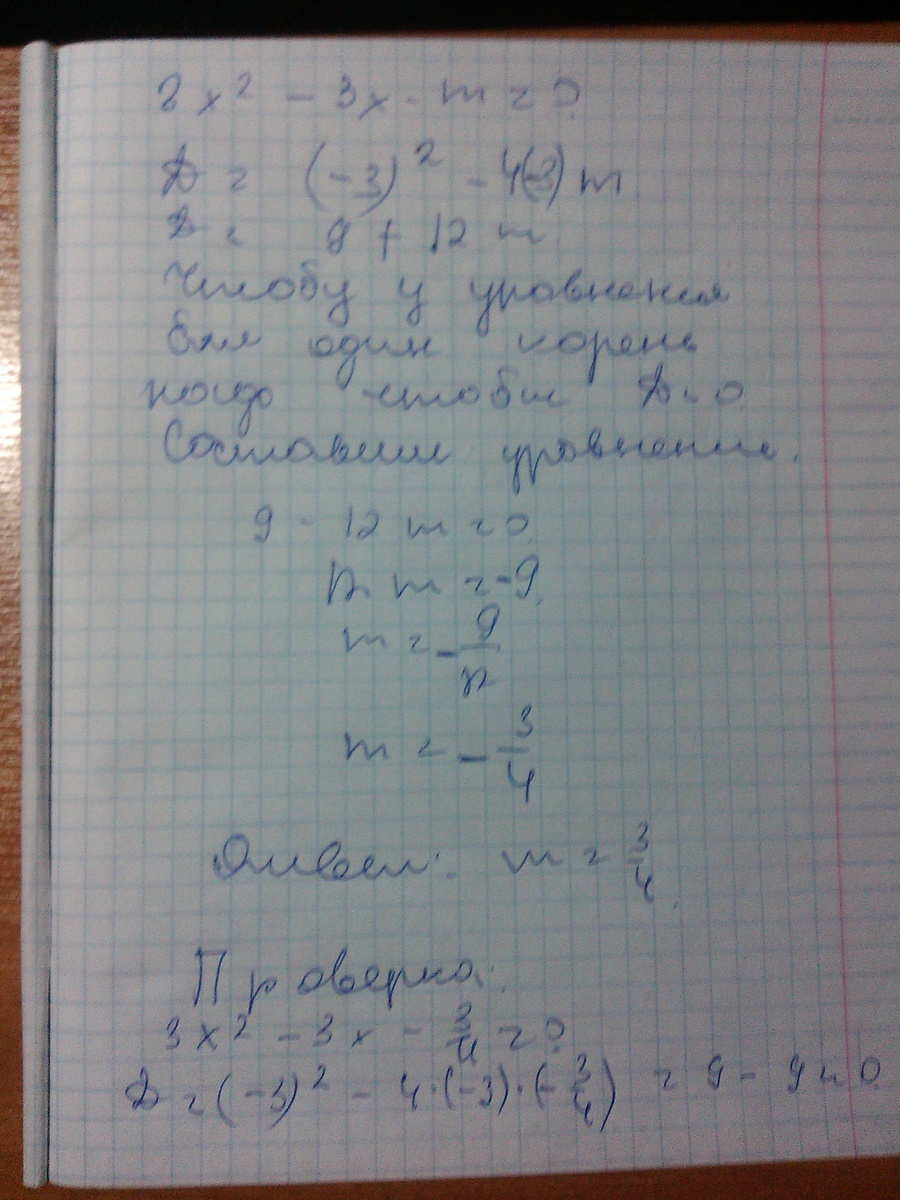 3x² - 3x - m = 0
D = (-3)² - 4(-3)m
D = 9 + 12 m
Чтобы у уровнения
был один корень
надо чтобы D = 0
Составим уровнение.
9 - 12 m = 0
12 m = -9
m = -9/12
m = -3/4
Ответ: m = 3/4.
Проверка:
3x² - 3x - 3/4 = 0
D = (-3)² - 4·(-3)·(-3/4) = 9 - 9 = 0